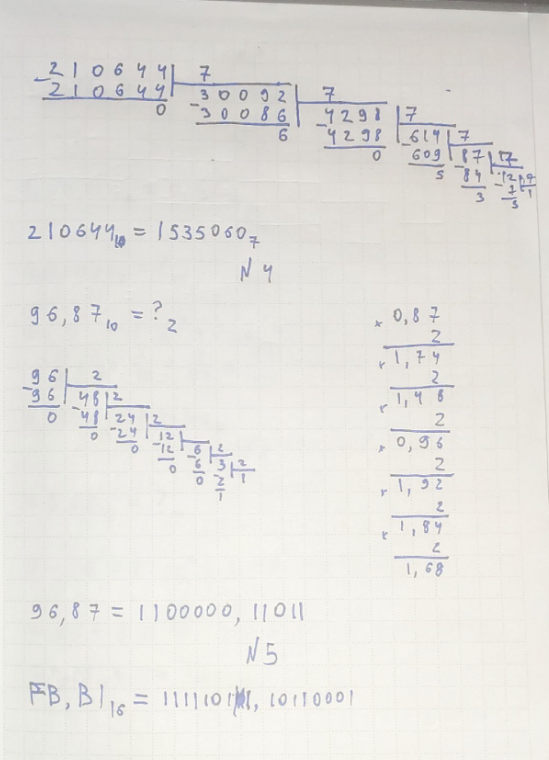 210644 | 7
-210644 | 30092 | 7
0 -30086 | 4298 | 7
6 -4298 | 614 | 7
0 -609 | 87 | 7
5 -84 | 12 | 7
3 -7 | 1
5
210644₁₀ = 1535060₇
N 4
96,87₁₀ = ?₂
96 | 2
-96 | 48 | 2
0 -48 | 24 | 2
0 -24 | 12 | 2
0 -12 | 6 | 2
0 -6 | 3 | 2
0 -2 | 1
1
× 0,87
2
× 1,74
2
× 1,48
2
× 0,96
2
× 1,92
2
× 1,84
2
1,68
96,87 = 1100000,11011
N5
FB,B1₁₆ = 11111011, 10110001